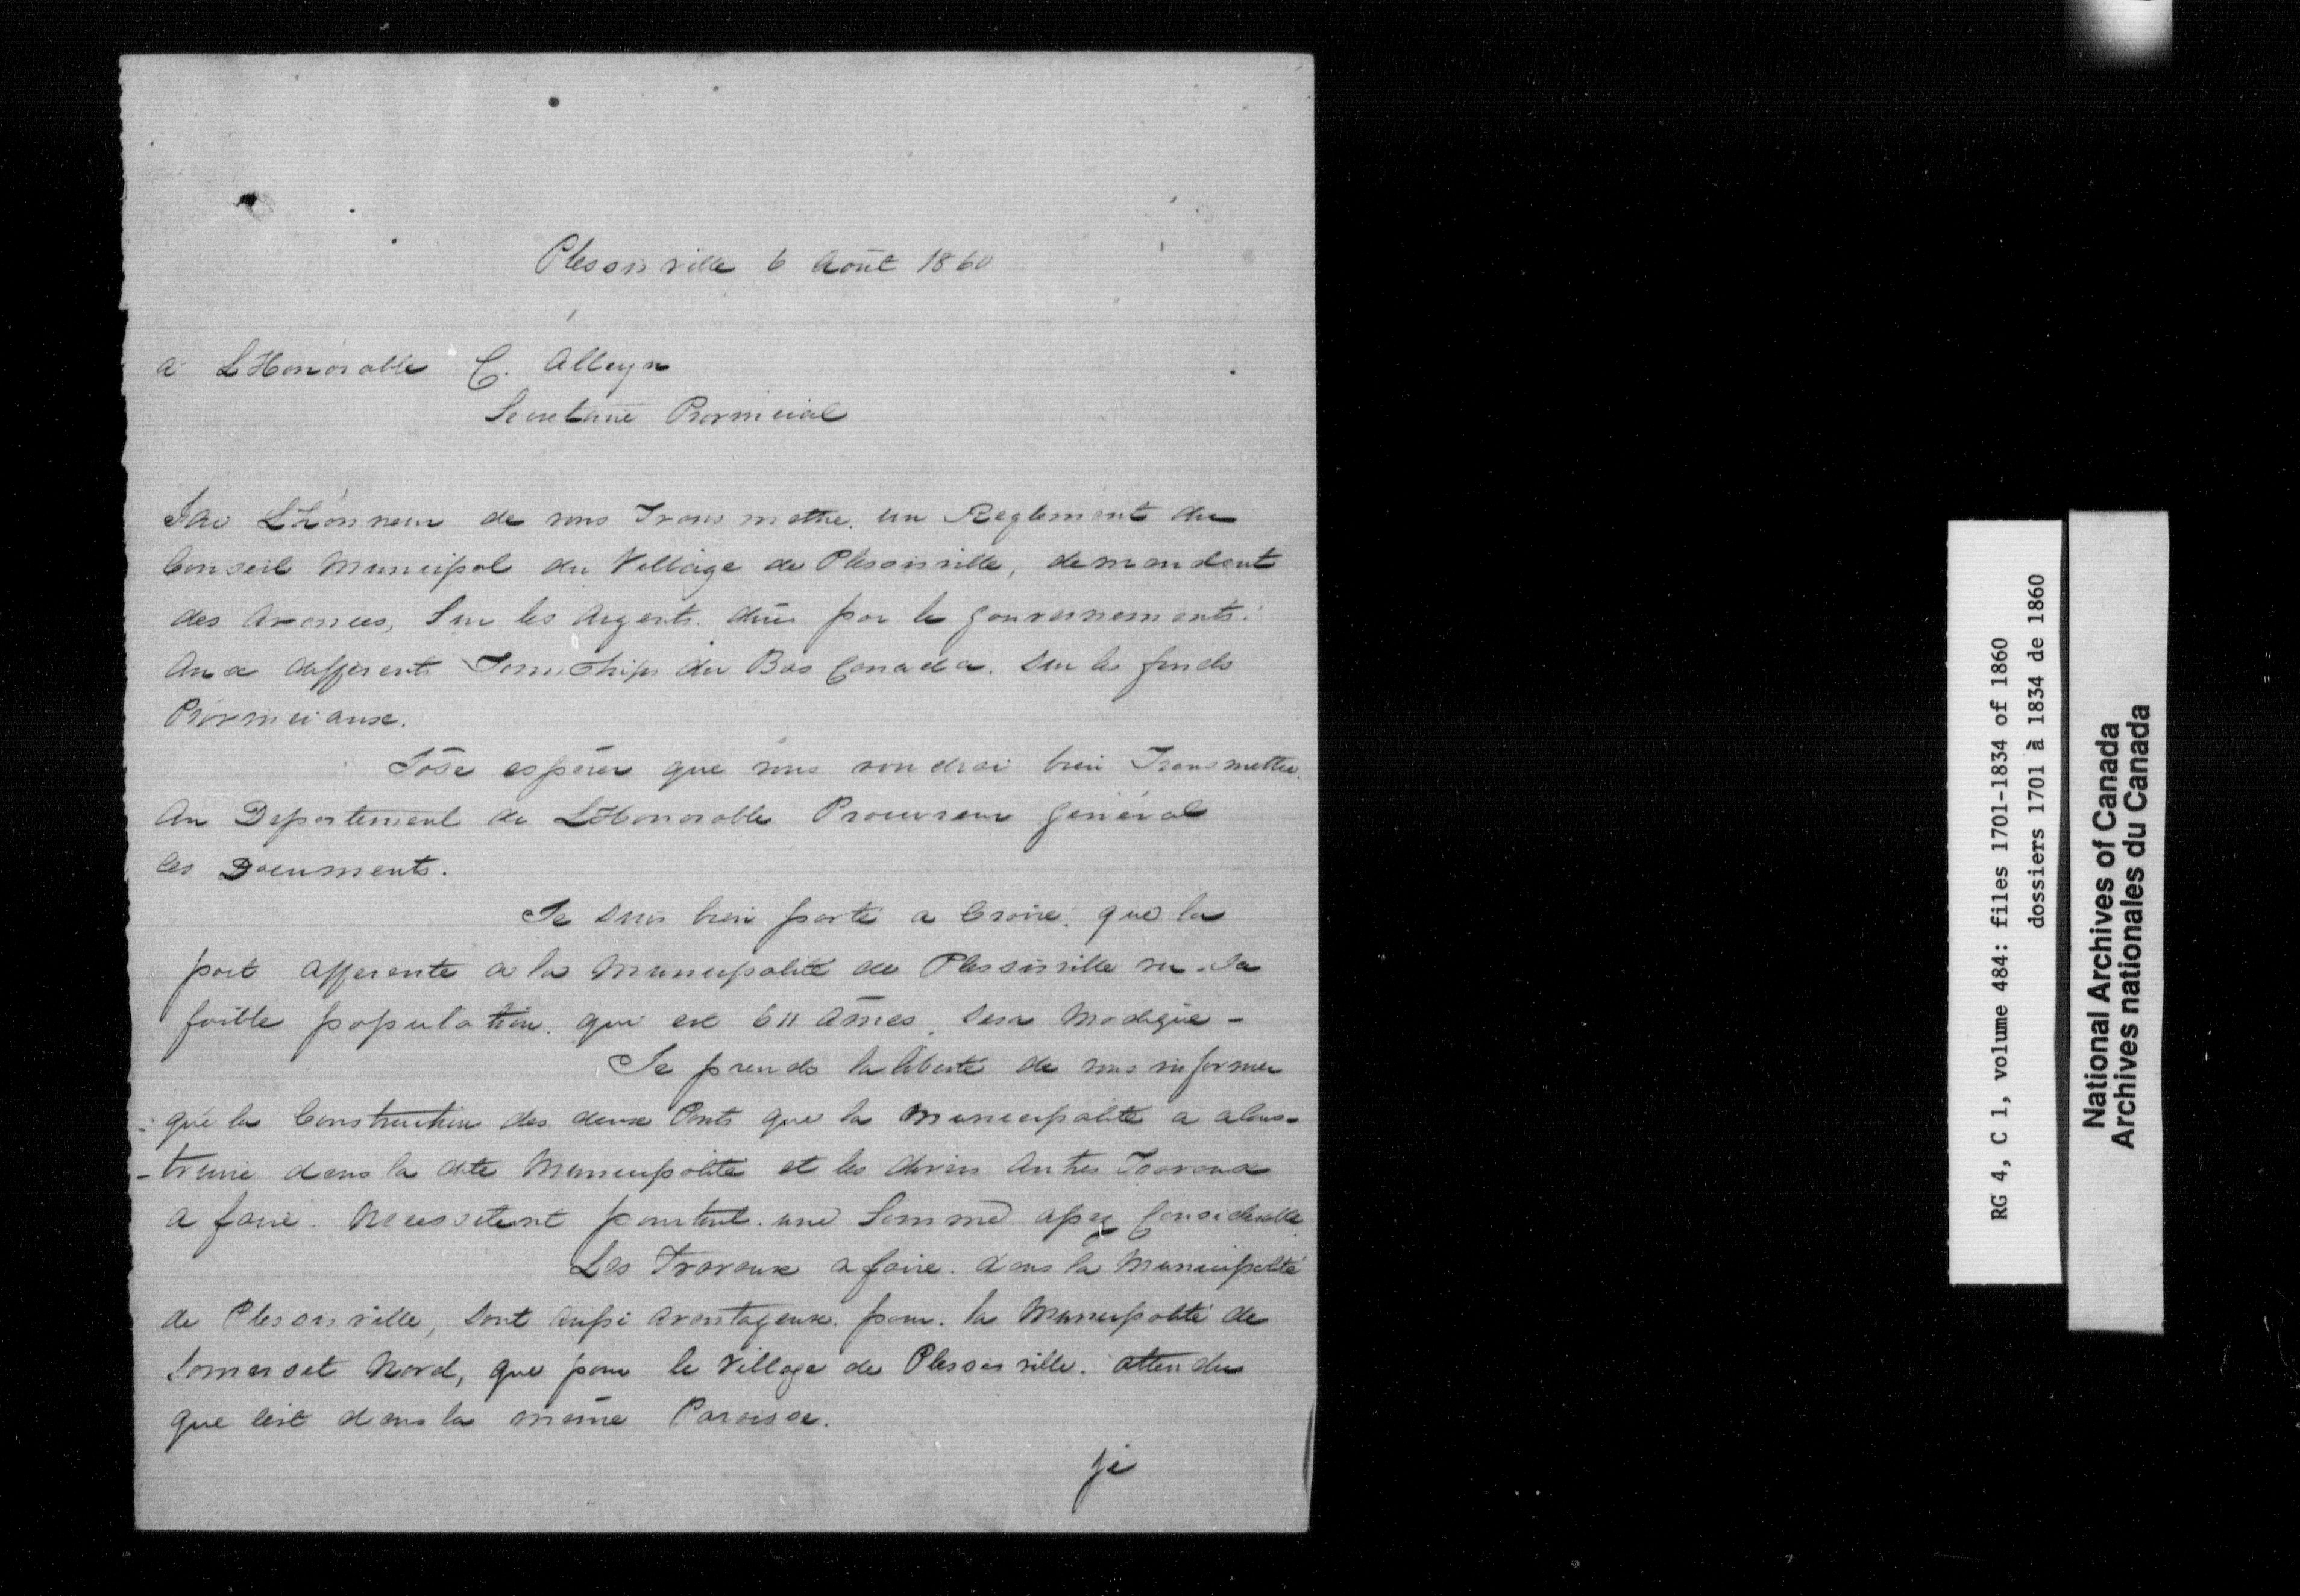 Plessisville 6 Août 1860
a L'Honorable C. Alleyn
Secretaire Provincial
J'ai L'honneur de vous Transmettre un Reglement du
Conseil Municipal du Village de Plessisville, demandent
des Avances, Sur les Argents dûs par le gouvernements
Aux differents Townships du Bas Canada. Sur les fonds
Provinciaux.
J'ôse espérer que vous voudrai bien Transmettre
Au Departement de L'Honorable Procureur général
les Documents.
Je suis bien porté a Croire que la
part afferente a la Municipalité de Plessisville vu sa
faible population qui est 611 âmes, sera Modique -
Je prends la liberté de vous informer
que la Construction des deux Ponts que la Municipalité a
-truire dans la dite Municipalité et les divers Autres Travaux
a faire. Necessitent pourtant une Somme assez Considerable
Les Travaux a faire dans la Municipalité
de Plessisville, sont aussi avantageux pour la Municipalité de
Somerset Nord, que pour le Village de Plessisville. attendu
que c'est dans la même Paroisse.
je
RG 4, C 1, volume 484: files 1701-1834 of 1860
dossiers 1701 à 1834 de 1860
National Archives of Canada
Archives nationales du Canada